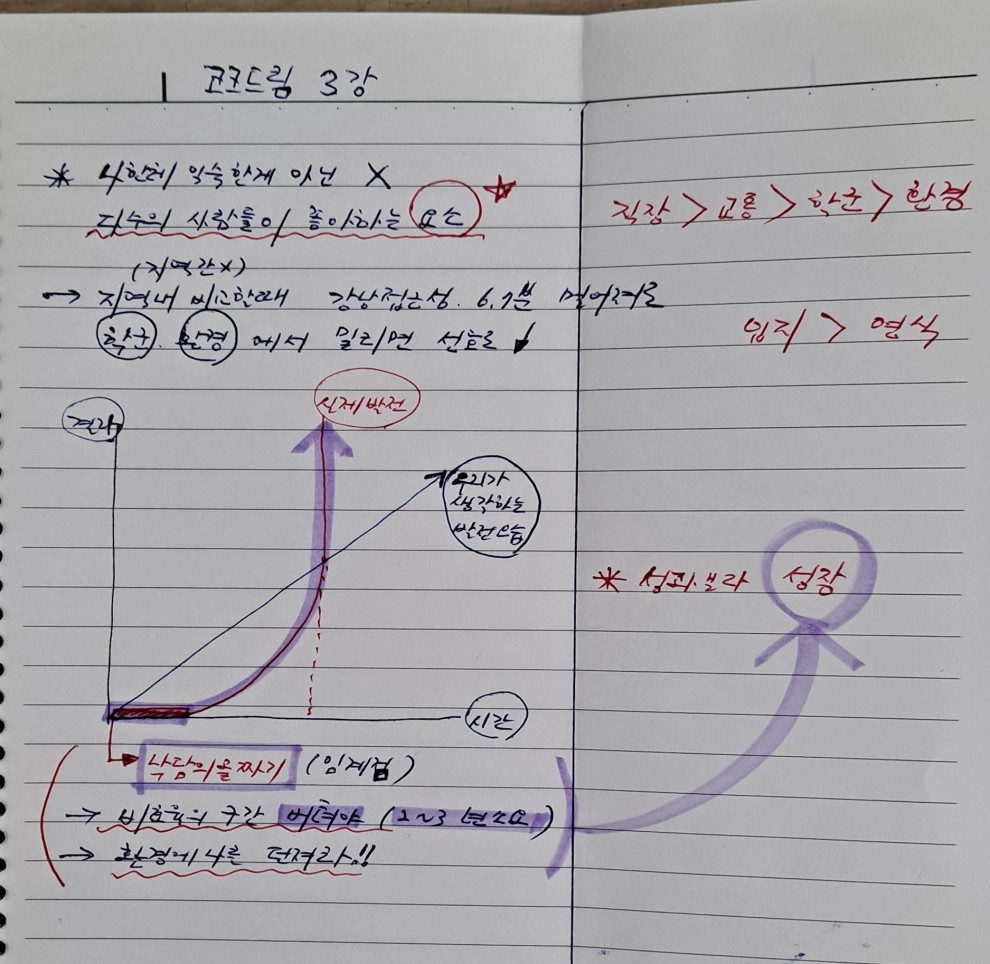 코크드림 3강
* 나한테 익숙한게 아닌 X
다수의 사람들이 좋아하는 요소
(지역간X)
→ 지역내 비교할때 강남접근성. 6,7분 멀어져도
학군. 환경 에서 밀리면 선호도 ↓
결과
실제발전
우리가
생각하는
발전모습
시간
낙담의골짜기 (임계점)
→ 비효율의 구간 버텨야 (2~3년소요)
→ 환경에 나를 던져라!!
직장 > 교통 > 학군 > 환경
입지 > 연식
* 성과.보다 성장